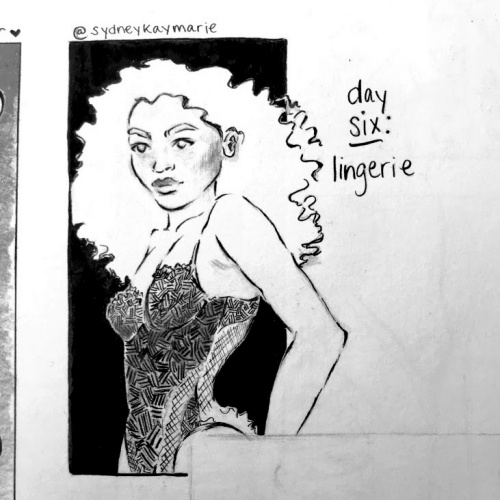 r ♥
@sydneykaymarie
day
six:
lingerie